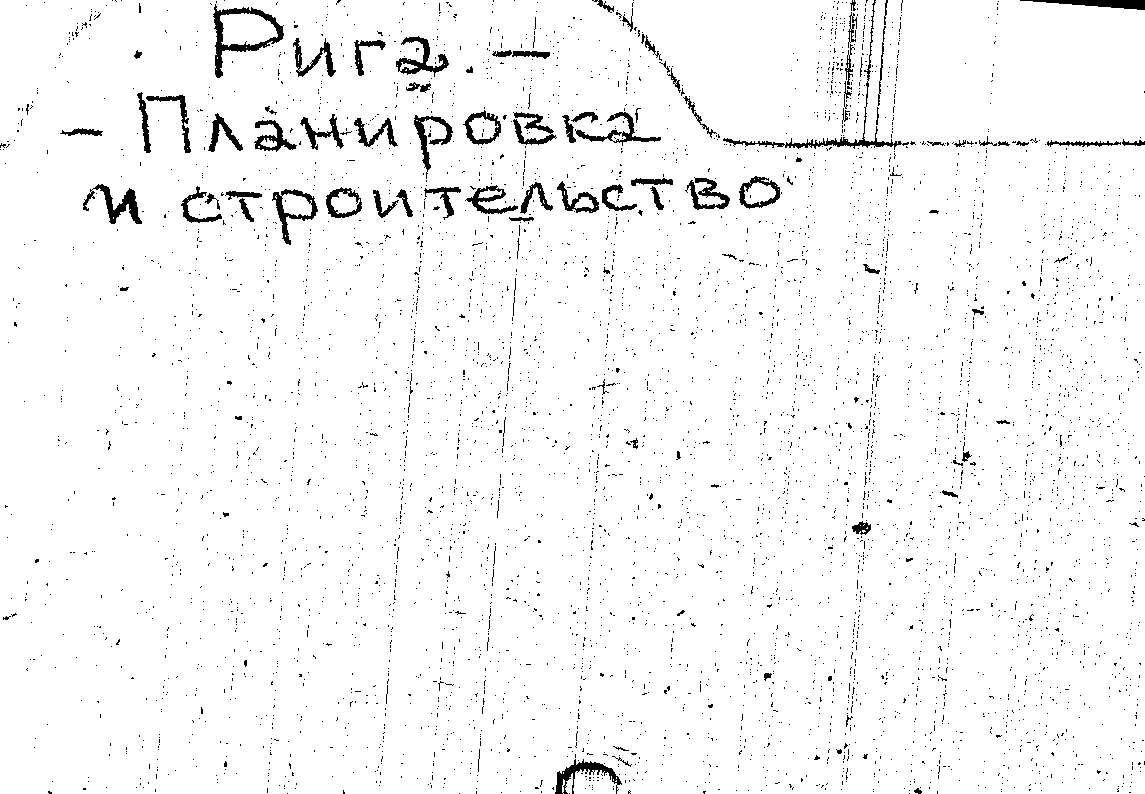 Рига. –
– Планировка
и строительство